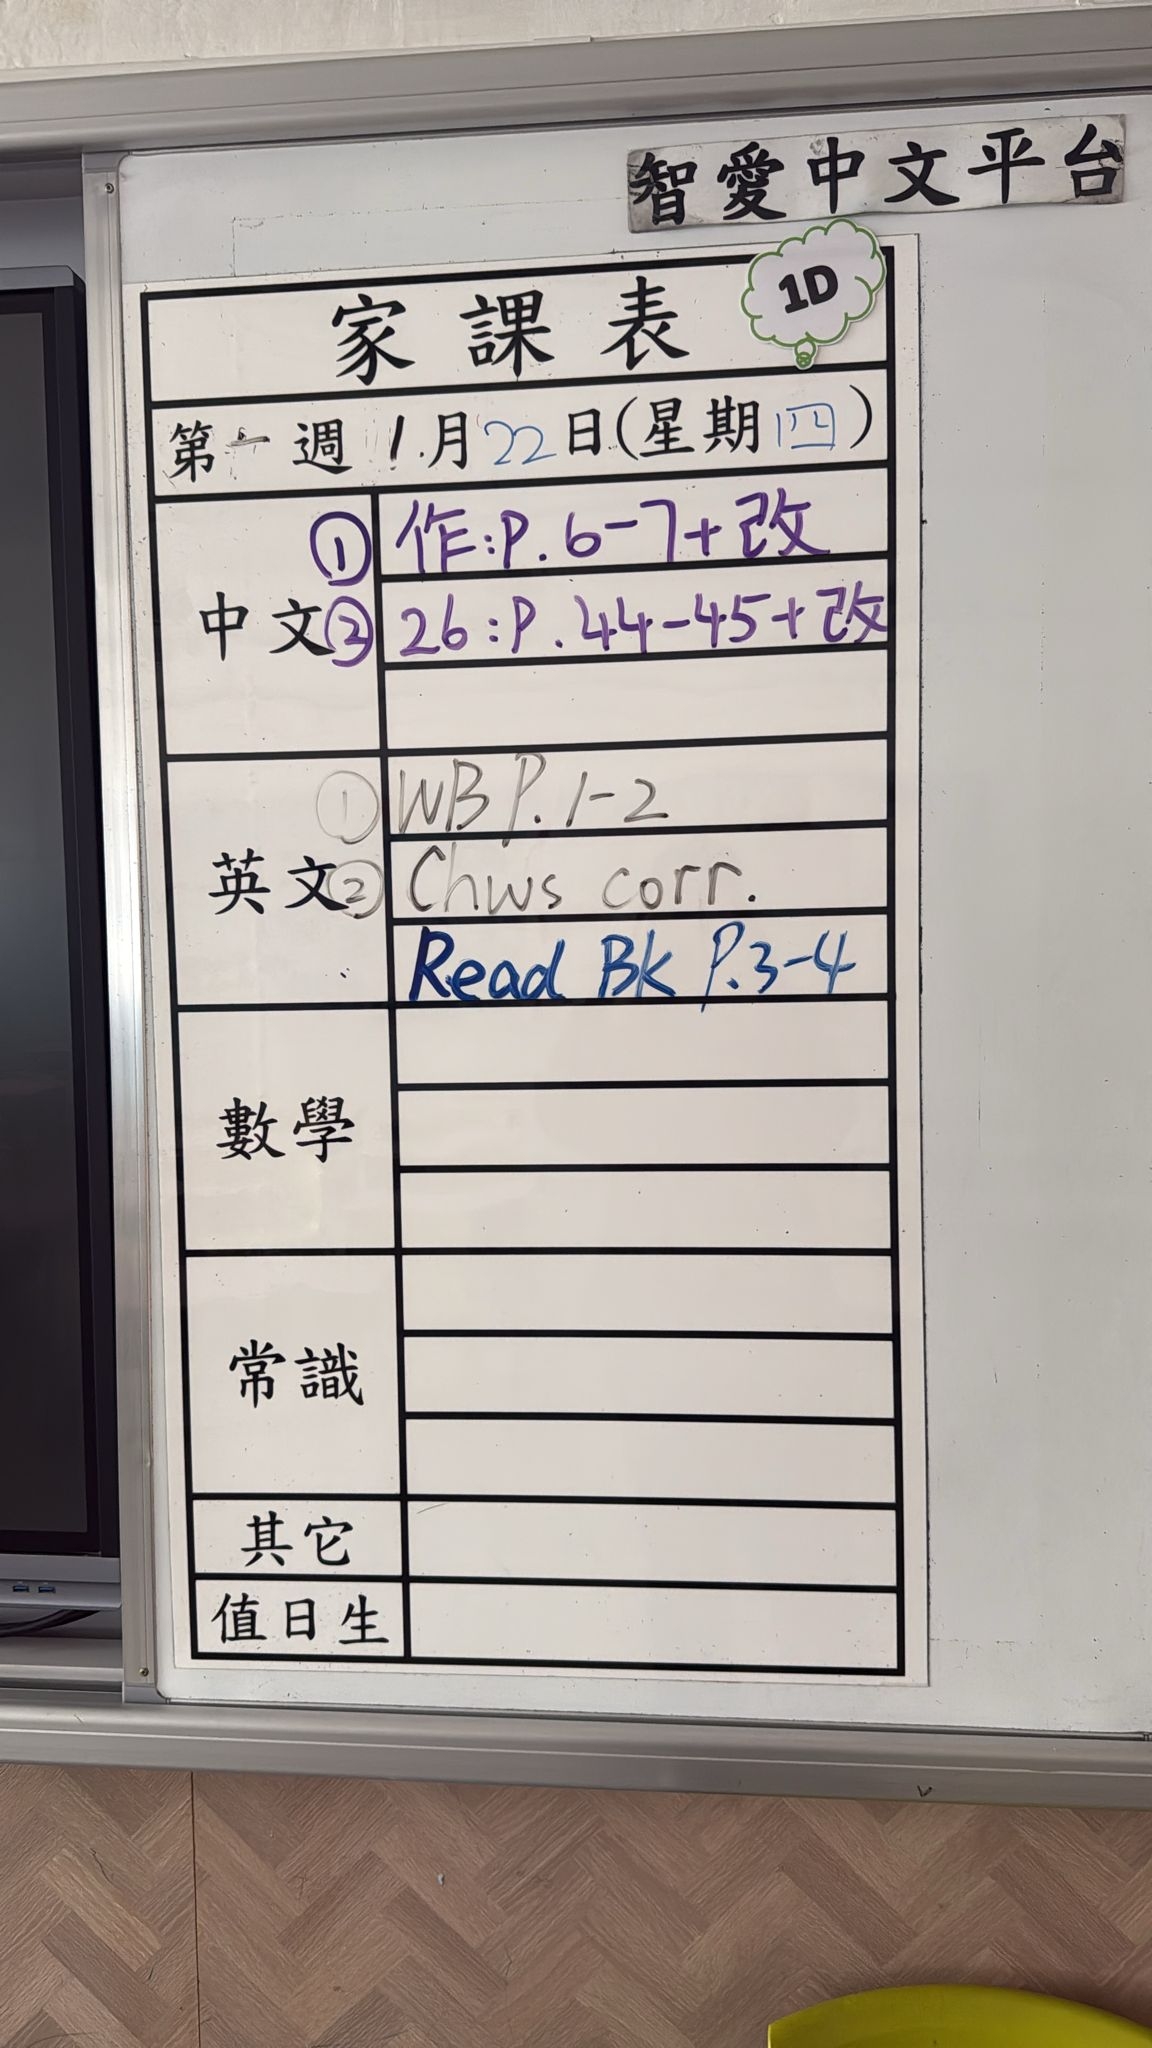 智愛中文平台
家課表
1D
第一週 1月22日(星期四)
中文
① 作:P.6-7+改
② 26:P.44-45+改
英文
① WB P.1-2
② Chws corr.
Read Bk P.3-4
數學
常識
其它
值日生